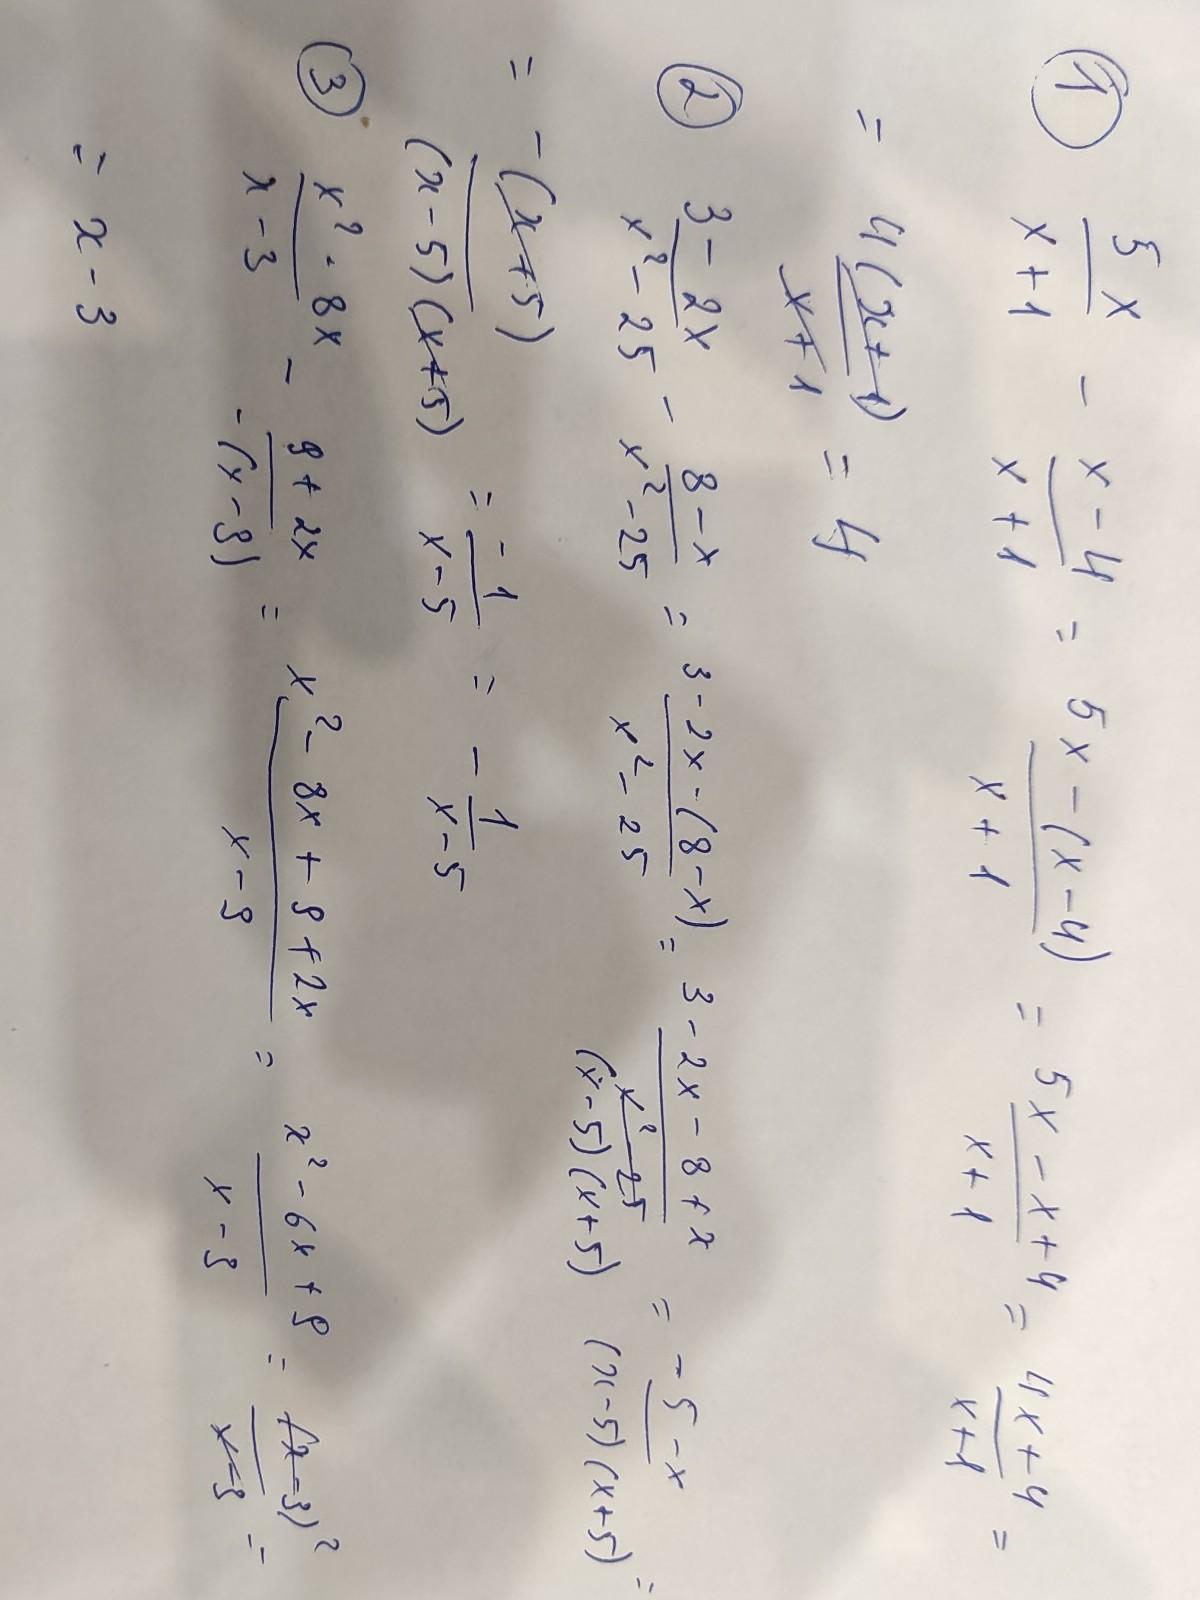 ① 5x/(x+1) - (x-4)/(x+1) = (5x-(x-4))/(x+1) = (5x-x+4)/(x+1) = (4x+4)/(x+1) =
= 4(x+1)/(x+1) = 4
② (3-2x)/(x²-25) - (8-x)/(x²-25) = (3-2x-(8-x))/(x²-25) = (3-2x-8+x)/((x-5)(x+5)) = (-5-x)/((x-5)(x+5)) =
= -(x+5)/((x-5)(x+5)) = -1/(x-5) = - 1/(x-5)
③ (x²-8x)/(x-3) - (9+2x)/(-(x-3)) = (x²-8x+9+2x)/(x-3) = (x²-6x+9)/(x-3) = (x-3)²/(x-3) =
= x-3